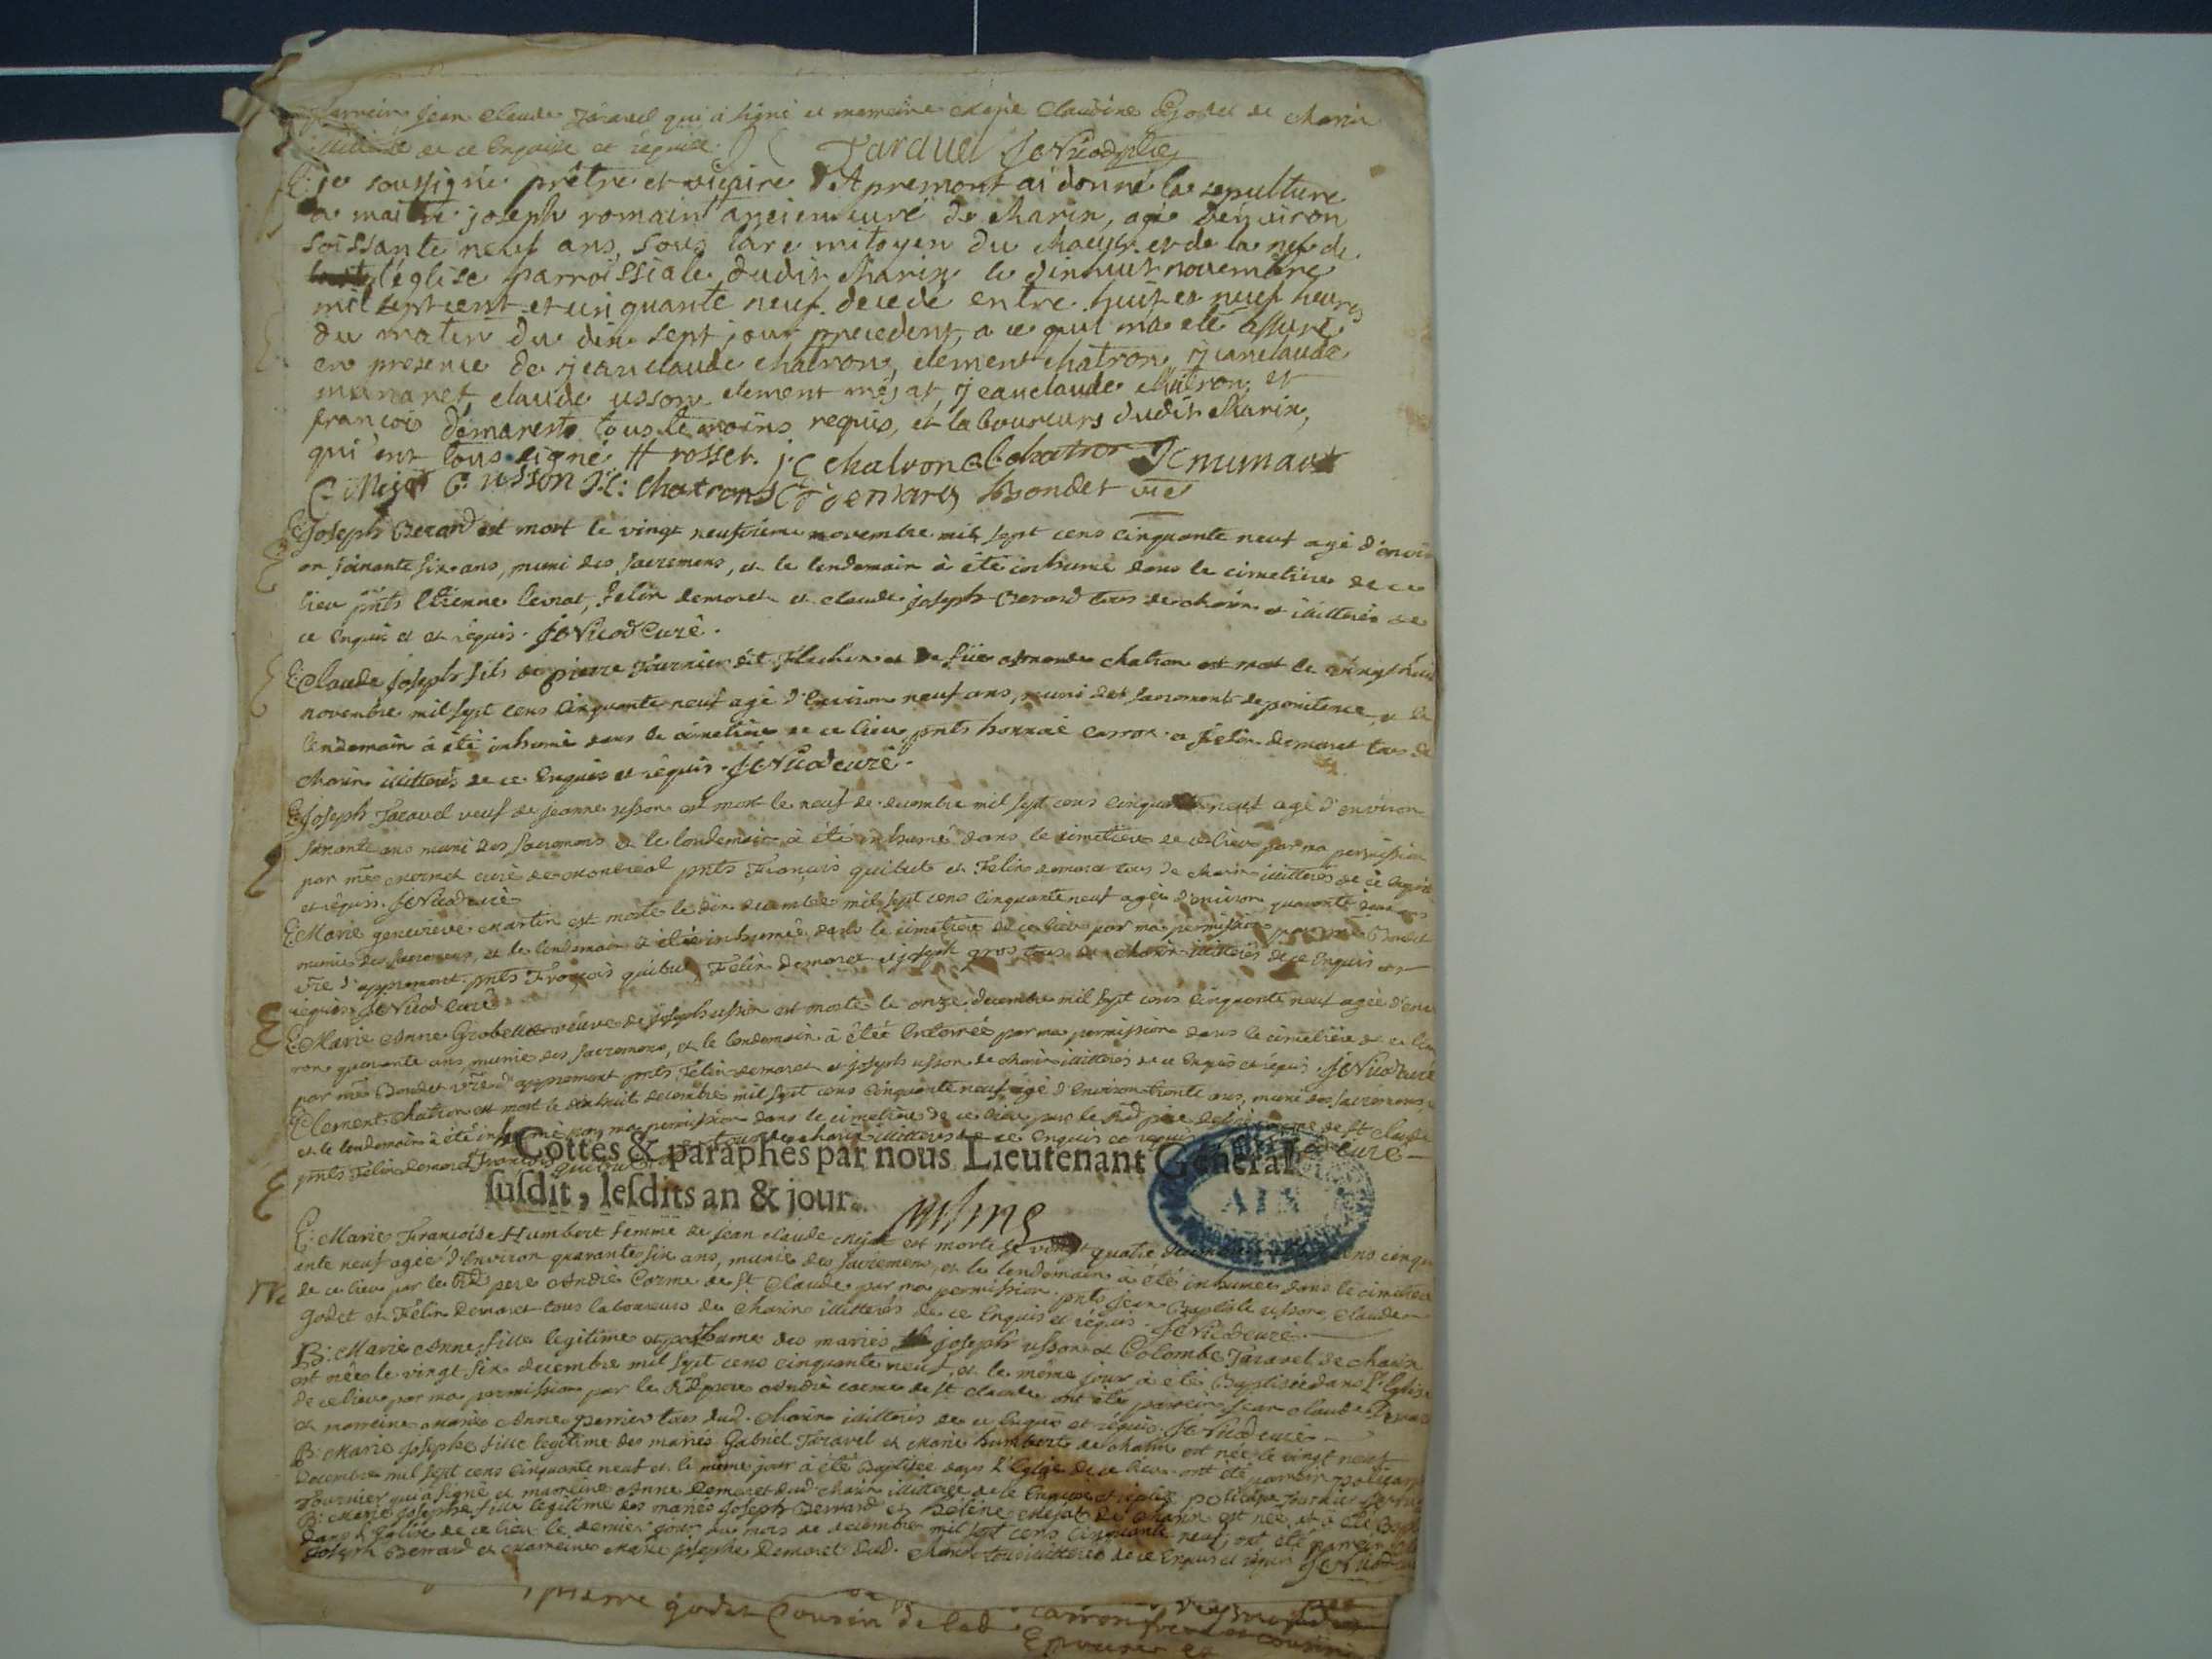 parrein jean claude Taravel qui à signé et marreine Marie Claudine Godet de charix
illitérée de ce Enquise et réquise. Taravel JCNicod ptre
E: je soussigné prêtre et vicaire d'Apremont ai donné la sepulture
a maitre joseph romain ancien curé de Charix, agé d'environ
soissante neuf ans, sous l'arc mitoyen du choeur et de la nef de
l'église parroissiale dudit Charix le dixhuit novembre
mil sept cent et cinquante neuf decedé entre huit et neuf heures
du matin du dix sept jour precedent, a ce qui m'a eté assuré
en presence de jean claude chatron, clement chatron, jeanclaude
claude usson clement méjat, jeanclaude chatron et
françois démaret tous temoins requis, et laboureurs dudit Charix,
qui ont tous signé rosset. j: C chatron C chatron
C: Mejat C: usson J:C: chatron Bondet vic
E: Joseph Berard est mort le vingt neufvieme novembre mil sept cens cinquante neuf agé d'envir
on soixante six ans, muni des sacremens, et le lendemain à été inhumé dans le cimetiere de ce
lieu pnts Etienne Felix demaret et claude joseph Berard tous de charix et illiterés de
ce Enquis et et réquis. JCNicod Curé.
E: Claude Joseph fils de pierre Tournier dit et de chatron est mort le vingt huit
novembre mil sept cens cinquante neuf agé d'Environ neuf ans, muni des sacrement de penitence, et le
lendemain à été inhumé dans le cimetiere de ce lieu pnts carron et Felix demaret tous de
charix illiterés de ce Enquis et réquis. JCNicod curé.
E: Joseph Taravel veuf de jeanne usson est mort le neuf de decembre mil sept cens cinquante neuf agé d'environ
ans muni des sacremens et le lendemain à été inhumé dans le cimetiere de ce lieu par ma permission
par mre curé de Montreal pnts François quibut et Felix demaret tous de charix illiterés de ce Enquis
et réquis. JCNicod curé
E: Marie genevieve Martin est morte le dix decembre mil sept cens cinquante neuf agée d'environ quarante ans
munie des sacremens, et le lendemain à été inhumée dans le cimetiere de ce lieu par ma permission par mre Bondet
vre d'appremont pnts François quibut Felix demaret et joseph gros tous de charix illiterés de ce Enquis et
réquis. JCNicod curé
E: Marie Anne veuve de joseph usson est morte le onze decembre mil sept cens cinquante neuf agée d'envi
ron quarante ans munie des sacremens, et le lendemain à étée Enterrée par ma permission dans le cimetiere de ce lieu
par mre Bondet vre d'appremont pnts Felix demaret et joseph usson de charix illiterés de ce Enquis et réquis. JCNicod curé
E: Clement chatron est mort le dix huit decembre mil sept cens cinquante neuf agé d'Environ trente ans, muni des sacremens,
et le lendemain à été inhumé par ma permission dans le cimetiere de ce lieu par le Rd pere de St claude
pnts Felix demaret François quibut tous de charix illiterés de ce Enquis et réquis curé
Cottés & paraphés par nous Lieutenant Général
susdit, lesdits an & jour.
E: Marie Françoise Humbert femme de jean claude Mejat est morte le vingt quatre cens cinqu
ante neuf agée d'Environ quarante six ans, munie des sacremens, et le lendemain à été inhumée dans le cimetiere
de ce lieu par le Rd pere André Carme de St Claude par ma permission pnts jean Baptiste usson, claude
godet et Felix demaret tous laboureurs de charix illiterés de ce Enquis et réquis. JCNicod curé.
B: Marie Anne fille legitime et posthume des mariés joseph usson et Colombe Taravel de charix
est née le vingt six decembre mil sept cens cinquante neuf, et le même jour à été Baptisée dans l'Eglise
de ce lieu par ma permission par le Rd pere André carme de St claude ont été parrein jean claude
et marreine Marie Anne perrier tous dud. charix illiterés de ce Enquis et réquis. JCNicod curé
B: Marie josephe fille legitime des mariés Gabriel Taravel et Marie humbert de charix est née le vingt neuf
Decembre mil sept cens cinquante neuf et le même jour à été Baptisée dans l'Eglise de ce lieu ont été parrein policarpe
Tournier qui à signé et marreine Anne Demaret dud. charix illiterée de ce Enquise et réquise policarpe Tournier
B: Marie josephe fille legitime des mariés Joseph Berrard et Hélène Mejat de charix est née et à été
dans l'Eglise de ce lieu le dernier jour du mois de decembre mil sept cens cinquante neuf, ont été parrein
joseph Berrard et marreine Marie josephe Demaret dud. charix tous illiterés de ce Enquis et réquis JCNicod
pierre godet Cousin de lad. carron
AIN